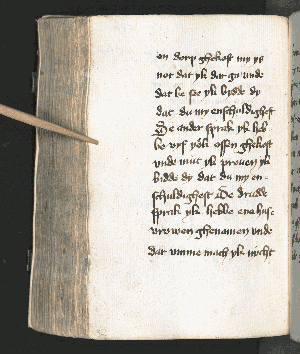 en dorp ghekoft my ys
not dat yk dat ga unde
dat be see yk bydde dy
dat du my enschuldighest
De ander sprak yk heb
be vyf yock ossen ghekoft
unde mut yk proven yk
bidde dy dat du my en-
schuldighest De drudde
sprak yk hebbe ene husz
vrowen ghenamen unde
dat umme mach yk nycht